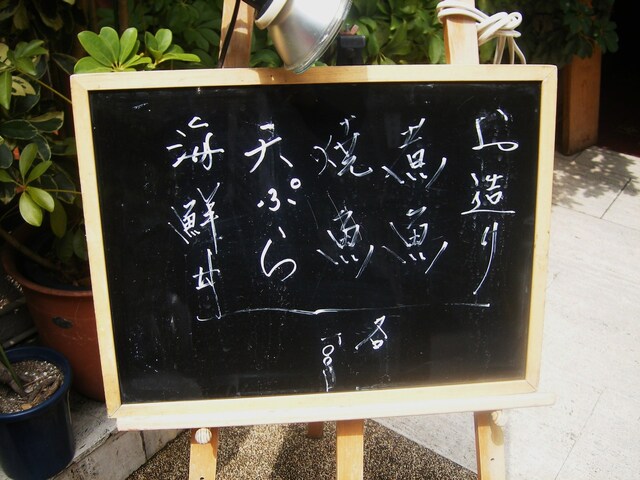 お造り
煮魚
焼魚
天ぷら
海鮮丼
各